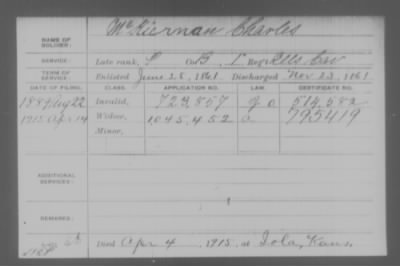 NAME OF SOLDIER: McKiernan Charles
SERVICE: Late rank, P Co. B, 1 Reg't Ills Cav
TERM OF SERVICE: Enlisted June 28, 1861 Discharged Nov 23, 1861
DATE OF FILING. CLASS. APPLICATION NO. LAW. CERTIFICATE NO.
1889 Aug 22 Invalid, 723,857 514,582
1915 Apr 14 Widow, 1045,452 795419
Minor,
ADDITIONAL SERVICES:
REMARKS:
Died Apr 4, 1915, at Iola, Kans.